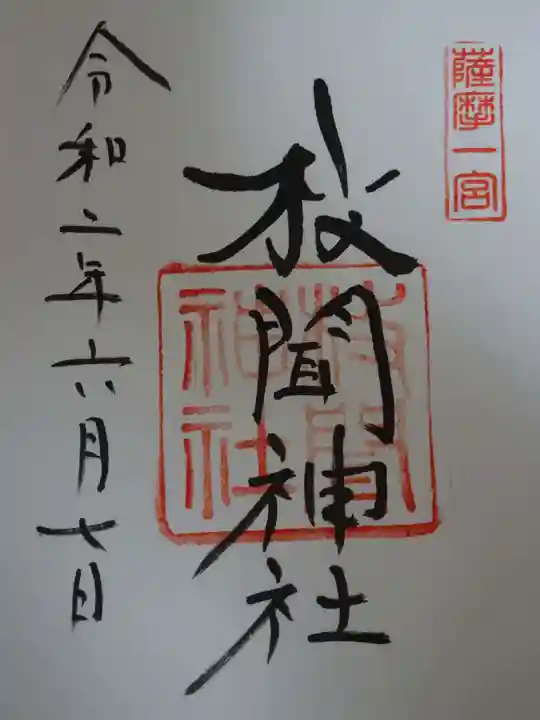 薩摩一宮
枚聞神社
枚聞
神社
令和二年六月七日